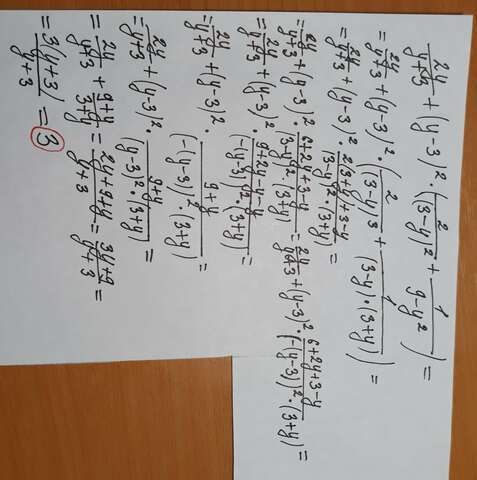 2y/(y+3) + (y-3)² · (2/(3-y)² + 1/(9-y²)) =
= 2y/(y+3) + (y-3)² · (2/(3-y)² + 1/((3-y)·(3+y))) =
= 2y/(y+3) + (y-3)² · (2(3+y)+3-y)/((3-y)²·(3+y)) =
= 2y/(y+3) + (y-3)² · (6+2y+3-y)/((3-y)²·(3+y)) = 2y/(y+3) + (y-3)² · (6+2y+3-y)/((-(y-3))²·(3+y)) =
= 2y/(y+3) + (y-3)² · (9+2y-y)/((-(y-3))²·(3+y)) =
= 2y/(y+3) + (y-3)² · (9+y)/((-(y-3))²·(3+y)) =
= 2y/(y+3) + (y-3)² · (9+y)/((y-3)²·(3+y)) =
= 2y/(y+3) + (9+y)/(3+y) = (2y+9+y)/(y+3) = (3y+9)/(y+3) =
= 3(y+3)/(y+3) = 3